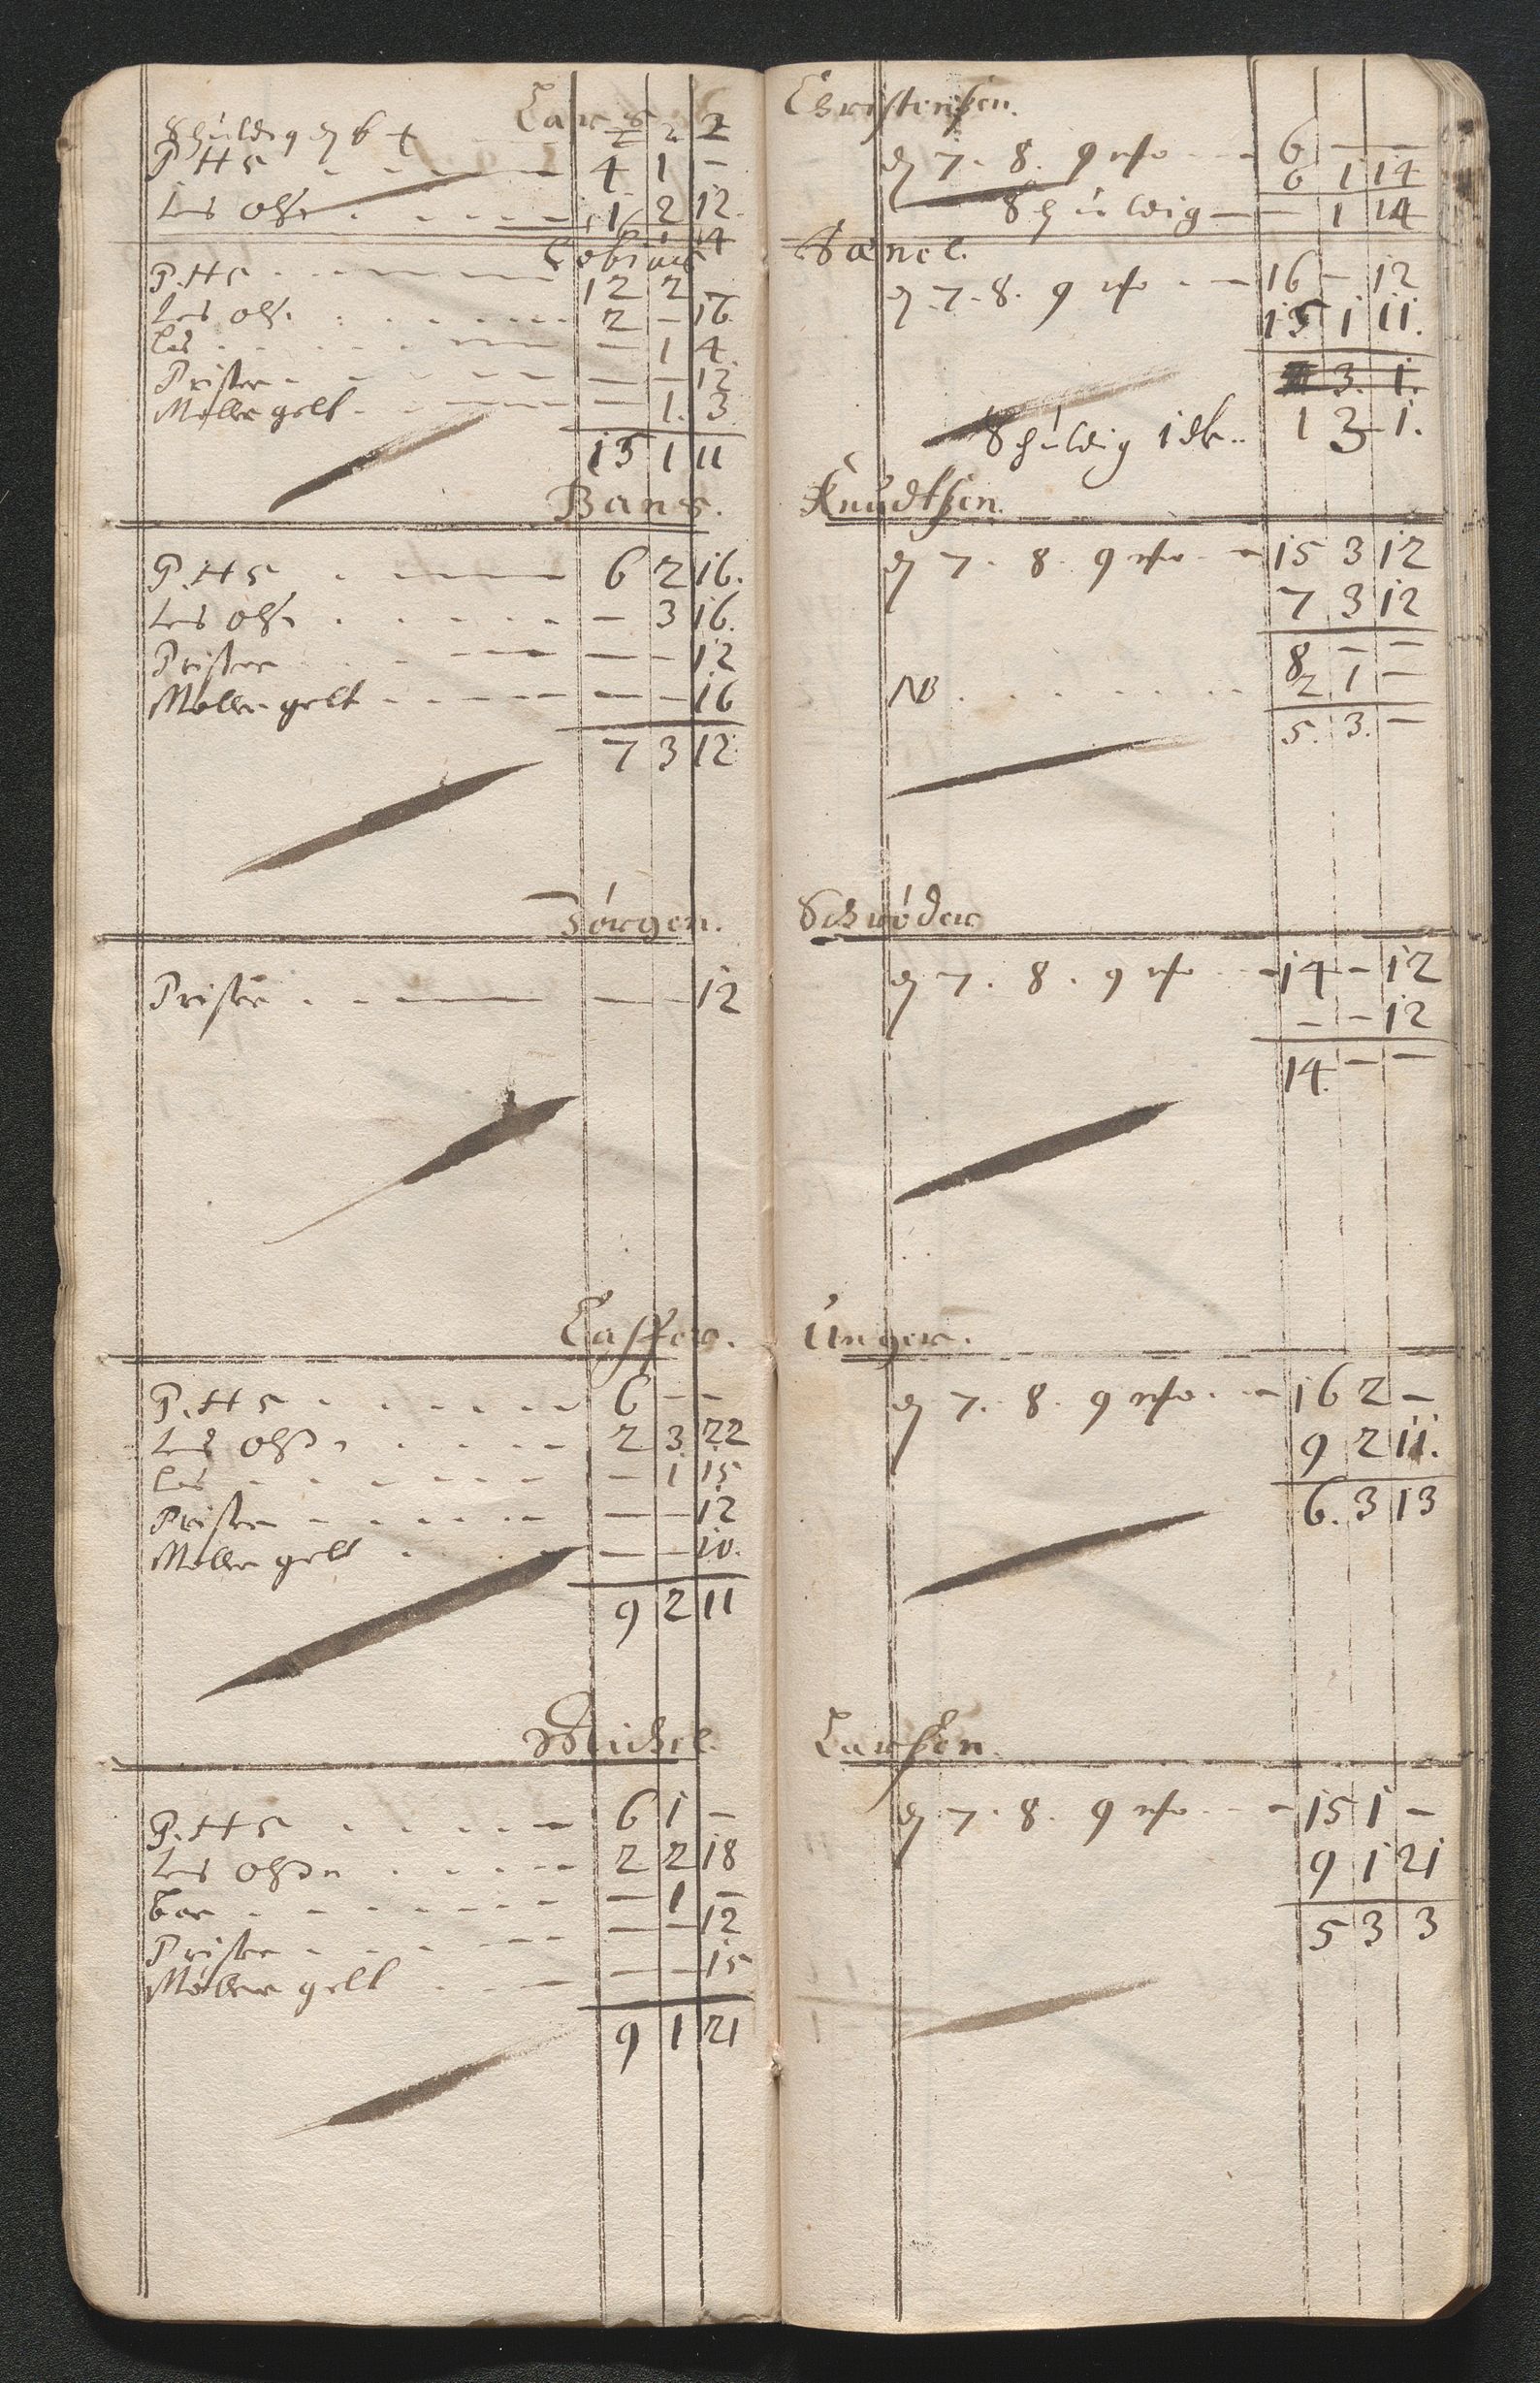 Lars
Schuldig 2 2
P. H S 4 1 -
Lars Olsen 1 2 12
6 1 14
Tobias
P. H S 12 2 -
Lars Ols. 2 - 16
- 1 4
Prister - - 12
Møller gelt - 1 3
15 1 11
Hans.
P. H S 6 2 16.
Lars Ols. - 3 16.
Prister - - 12
Møller gelt - - 16
7 3 12
Jørgen.
Prister - - 12
Casper.
P. H S 6 - -
2 3 22
- 1 15
Prister - - 12
Møller gelt - - 10.
9 2 11
Michel
P. H S 6 1 -
2 2 18
- 1 -
Prister - - 12
Møller gelt - - 15
9 1 21
Christensen.
7. 8. 9 6 - -
6 1 14
Schuldig - 1 14
Hænel.
7. 8. 9 16 - 12
15 1 11.
3. 1.
Schuldig 1 3 1.
Knudtsen.
7. 8. 9 15 3 12
7 3 12
8 - -
NB 2 1 -
5. 3. -
Schrøder
7. 8. 9 14 - 12
- - 12
14. - -
Unger.
7. 8. 9 16 2 -
9 2 11.
6. 3 13
Larsen
7. 8. 9 15 1 -
9 1 21
5 3 3